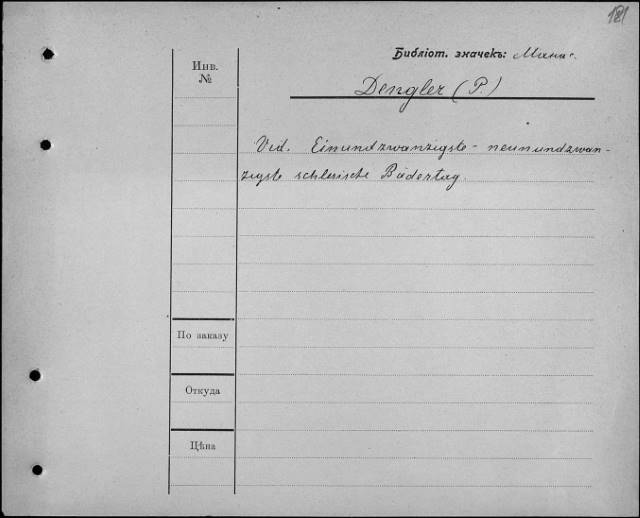 181
Библіот. значекъ:
Инв.
№
Dengler (P.)
Vid. Einundzwanzigste - neunundzwan-
zigste schlesische Bädertag.
По заказу
Откуда
Цѣна